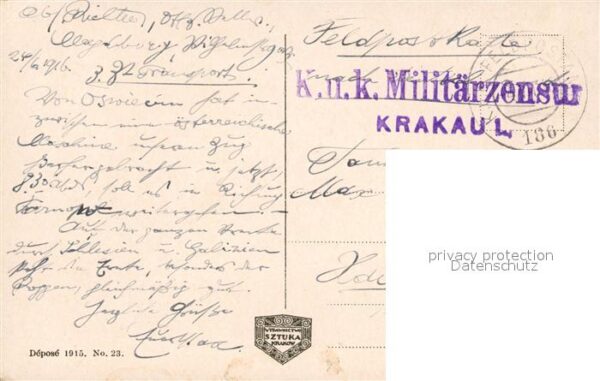 Abs. Richter,
Magdeburg, Wilhelms
24/6 1916.
z. Zt. Transport.
Von Oswiecim hat in-
zwischen eine österreichische
Maschine unseren Zug
hierhergebracht u. jetzt,
8.30 soll es in Richtung
Tarnow weitergehen.
Auf der ganzen Strecke
durch Schlesien u. Galizien
steht die Ernte, besonders der
Roggen, gleichmäßig gut.
Herzliche Grüße
Euer Max
Déposé 1915. No. 23.
WYDAWNICTWO
SZTUKA
KRAKÓW
Feldpostkarte
K.u.k. Militärzensur
KRAKAU I.
186
Max
privacy protection
Datenschutz